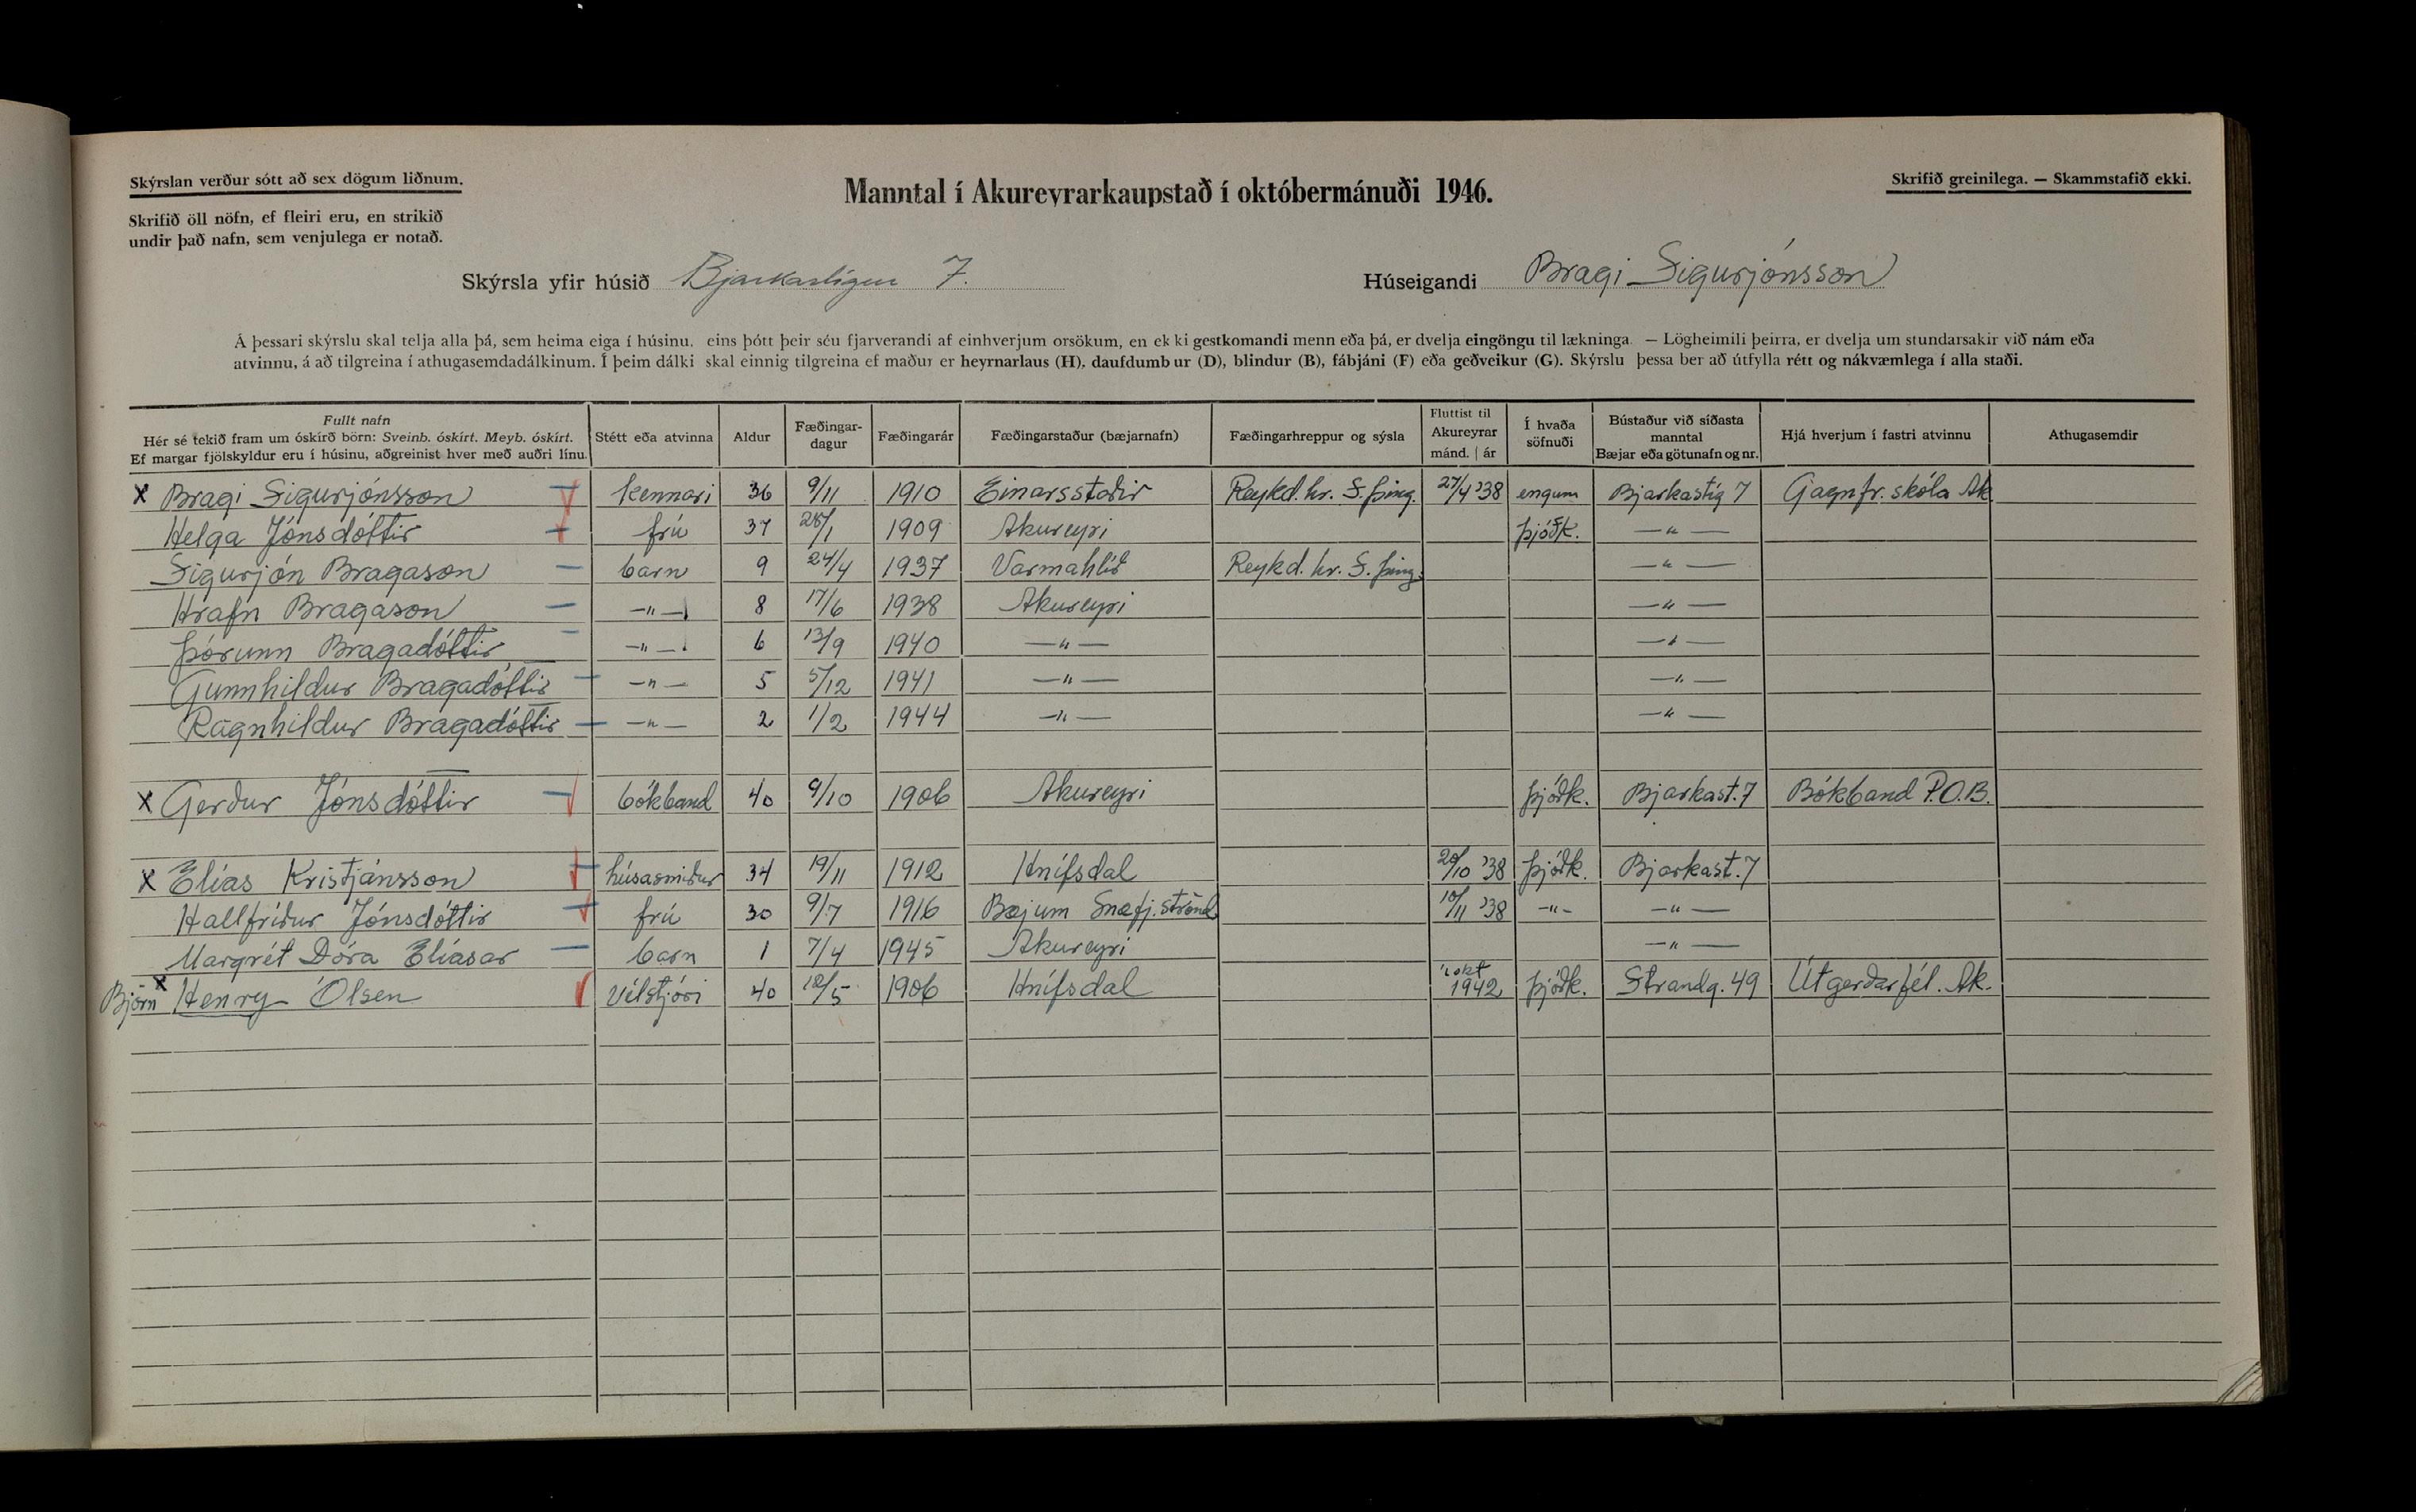 Skýrslan verður sótt að sex dögum liðnum.
Manntal í Akureyrarkaupstað í októbermánuði 1946.
Skrifið greinilega. — Skammstafið ekki.
Skrifið öll nöfn, ef fleiri eru, en strikið
undir það nafn, sem venjulega er notað.
Skýrsla yfir húsið Bjarkastígur 7. Húseigandi Bragi Sigurjónsson
Á þessari skýrslu skal telja alla þá, sem heima eiga í húsinu, eins þótt þeir séu fjarverandi af einhverjum orsökum, en ekki gestkomandi menn eða þá, er dvelja eingöngu til lækninga. — Lögheimili þeirra, er dvelja um stundarsakir við nám eða
atvinnu, á að tilgreina í athugasemdadálkinum. Í þeim dálki skal einnig tilgreina ef maður er heyrnarlaus (H), daufdumbur (D), blindur (B), fábjáni (F) eða geðveikur (G). Skýrslu þessa ber að útfylla rétt og nákvæmlega í alla staði.
Fullt nafn
Hér sé tekið fram um óskírð börn: Sveinb. óskírt. Meyb. óskírt.
Ef margar fjölskyldur eru í húsinu, aðgreinist hver með auðri línu.
Stétt eða atvinna
Aldur
Fæðingar-
dagur
Fæðingarár
Fæðingarstaður (bæjarnafn)
Fæðingarhreppur og sýsla
Fluttist til
Akureyrar
mánd. | ár
Í hvaða
söfnuði
Bústaður við síðasta
manntal
Bæjar eða götunafn og nr.
Hjá hverjum í fastri atvinnu
Athugasemdir
x Bragi Sigurjónsson kennari 36 9/11 1910 Einarsstaðir Reykd. hr. S. þing. 27/4 '38 engum Bjarkastíg 7 Gagnfr. skóla Ak.
Helga Jónsdóttir frú 37 28/1 1909 Akureyri þjóðk. —"—
Sigurjón Bragason barn 9 24/4 1937 Varmahlíð Reykd. hr. S. þing. —"—
Hrafn Bragason —"— 8 17/6 1938 Akureyri —"—
Þórunn Bragadóttir —"— 6 13/9 1940 —"— —"—
Gunnhildur Bragadóttir —"— 5 5/12 1941 —"— —"—
Ragnhildur Bragadóttir —"— 2 1/2 1944 —"— —"—
x Gerður Jónsdóttir bókband 40 9/10 1906 Akureyri þjóðk. Bjarkast. 7 Bókband P.O.B.
x Elías Kristjánsson húsasmiður 34 19/11 1912 Hnífsdal 20/10 '38 þjóðk. Bjarkast. 7
Hallfríður Jónsdóttir frú 30 9/7 1916 Bæjum Snæfj.strönd 10/11 '38 —"— —"—
Margrét Dóra Elíasar barn 1 7/4 1945 Akureyri —"—
Björn x Henry Olsen vélstjóri 40 12/5 1906 Hnífsdal í okt 1942 þjóðk. Strandg. 49 Útgerðarfél. Ak.